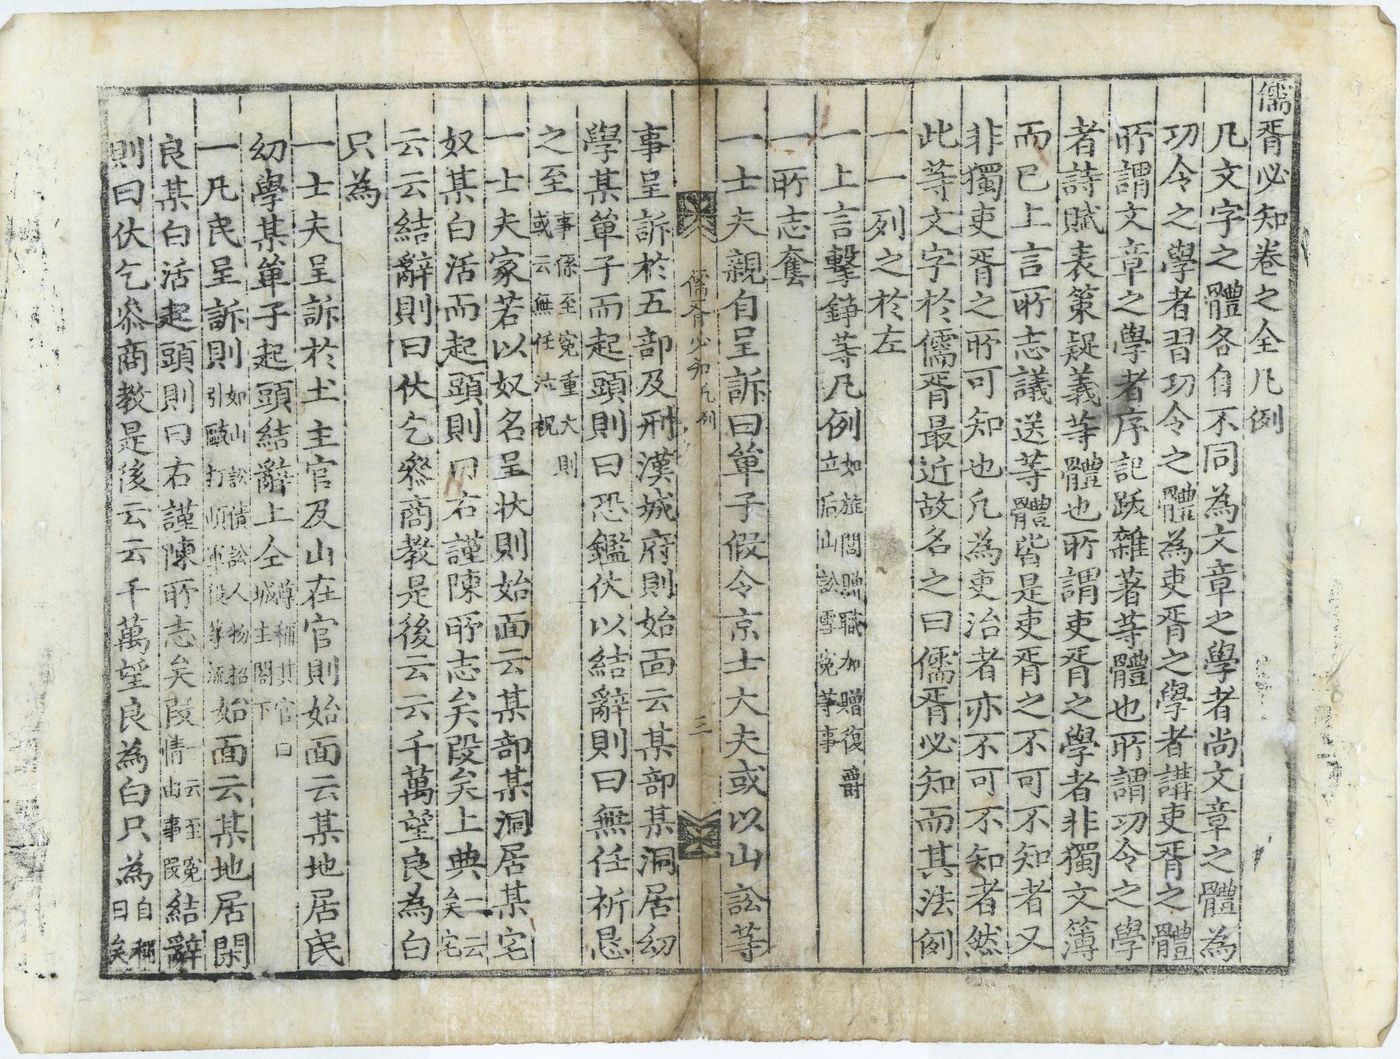 儒胥必知卷之全凡例
凡文字之體各自不同為文章之學者尚文章之體為
功令之學者習功令之體為吏胥之學者講吏胥之體
所謂文章之學者序記跋雜著等體也所謂功令之學
者詩賦表策疑義等體也所謂吏胥之學者非獨文簿
而已上言所志議送等體皆是吏胥之不可不知者又
非獨吏胥之所可知也凡為吏治者亦不可不知者然
此等文字於儒胥最近故名之曰儒胥必知而其法例
一一列之於左
一上言擊錚等凡例 如旌閭贈職加贈復爵
立后山訟雪冤等事
一所志套
一士夫親自呈訴曰單子假令京士大夫或以山訟等
儒胥必知凡例 三
事呈訴於五部及刑漢城府則始面云某部某洞居幼
學某單子而起頭則曰恐鑑伏以結辭則曰無任祈恳
之至 事係至冤重大則
或云無任泣祝
一士夫家若以奴名呈状則始面云某部某洞居某宅
奴某白活而起頭則曰右謹陳所志矣段矣上典 一云
矣宅
云云結辭則曰伏乞叅商教是後云云千萬望良為白
只為
一士夫呈訴於土主官及山在官則始面云某地居民
幼學某單子起頭結辭上仝 尊稱其官曰
城主閤下
一凡民呈訴則 如山訟債訟人物招
引敺打頉軍役等流 始面云某地居閑
良某白活起頭則曰右謹陳所志矣段 云至冤
情由事段 結辭
則曰伏乞叅商教是後云云千萬望良為白只為 自稱
曰矣